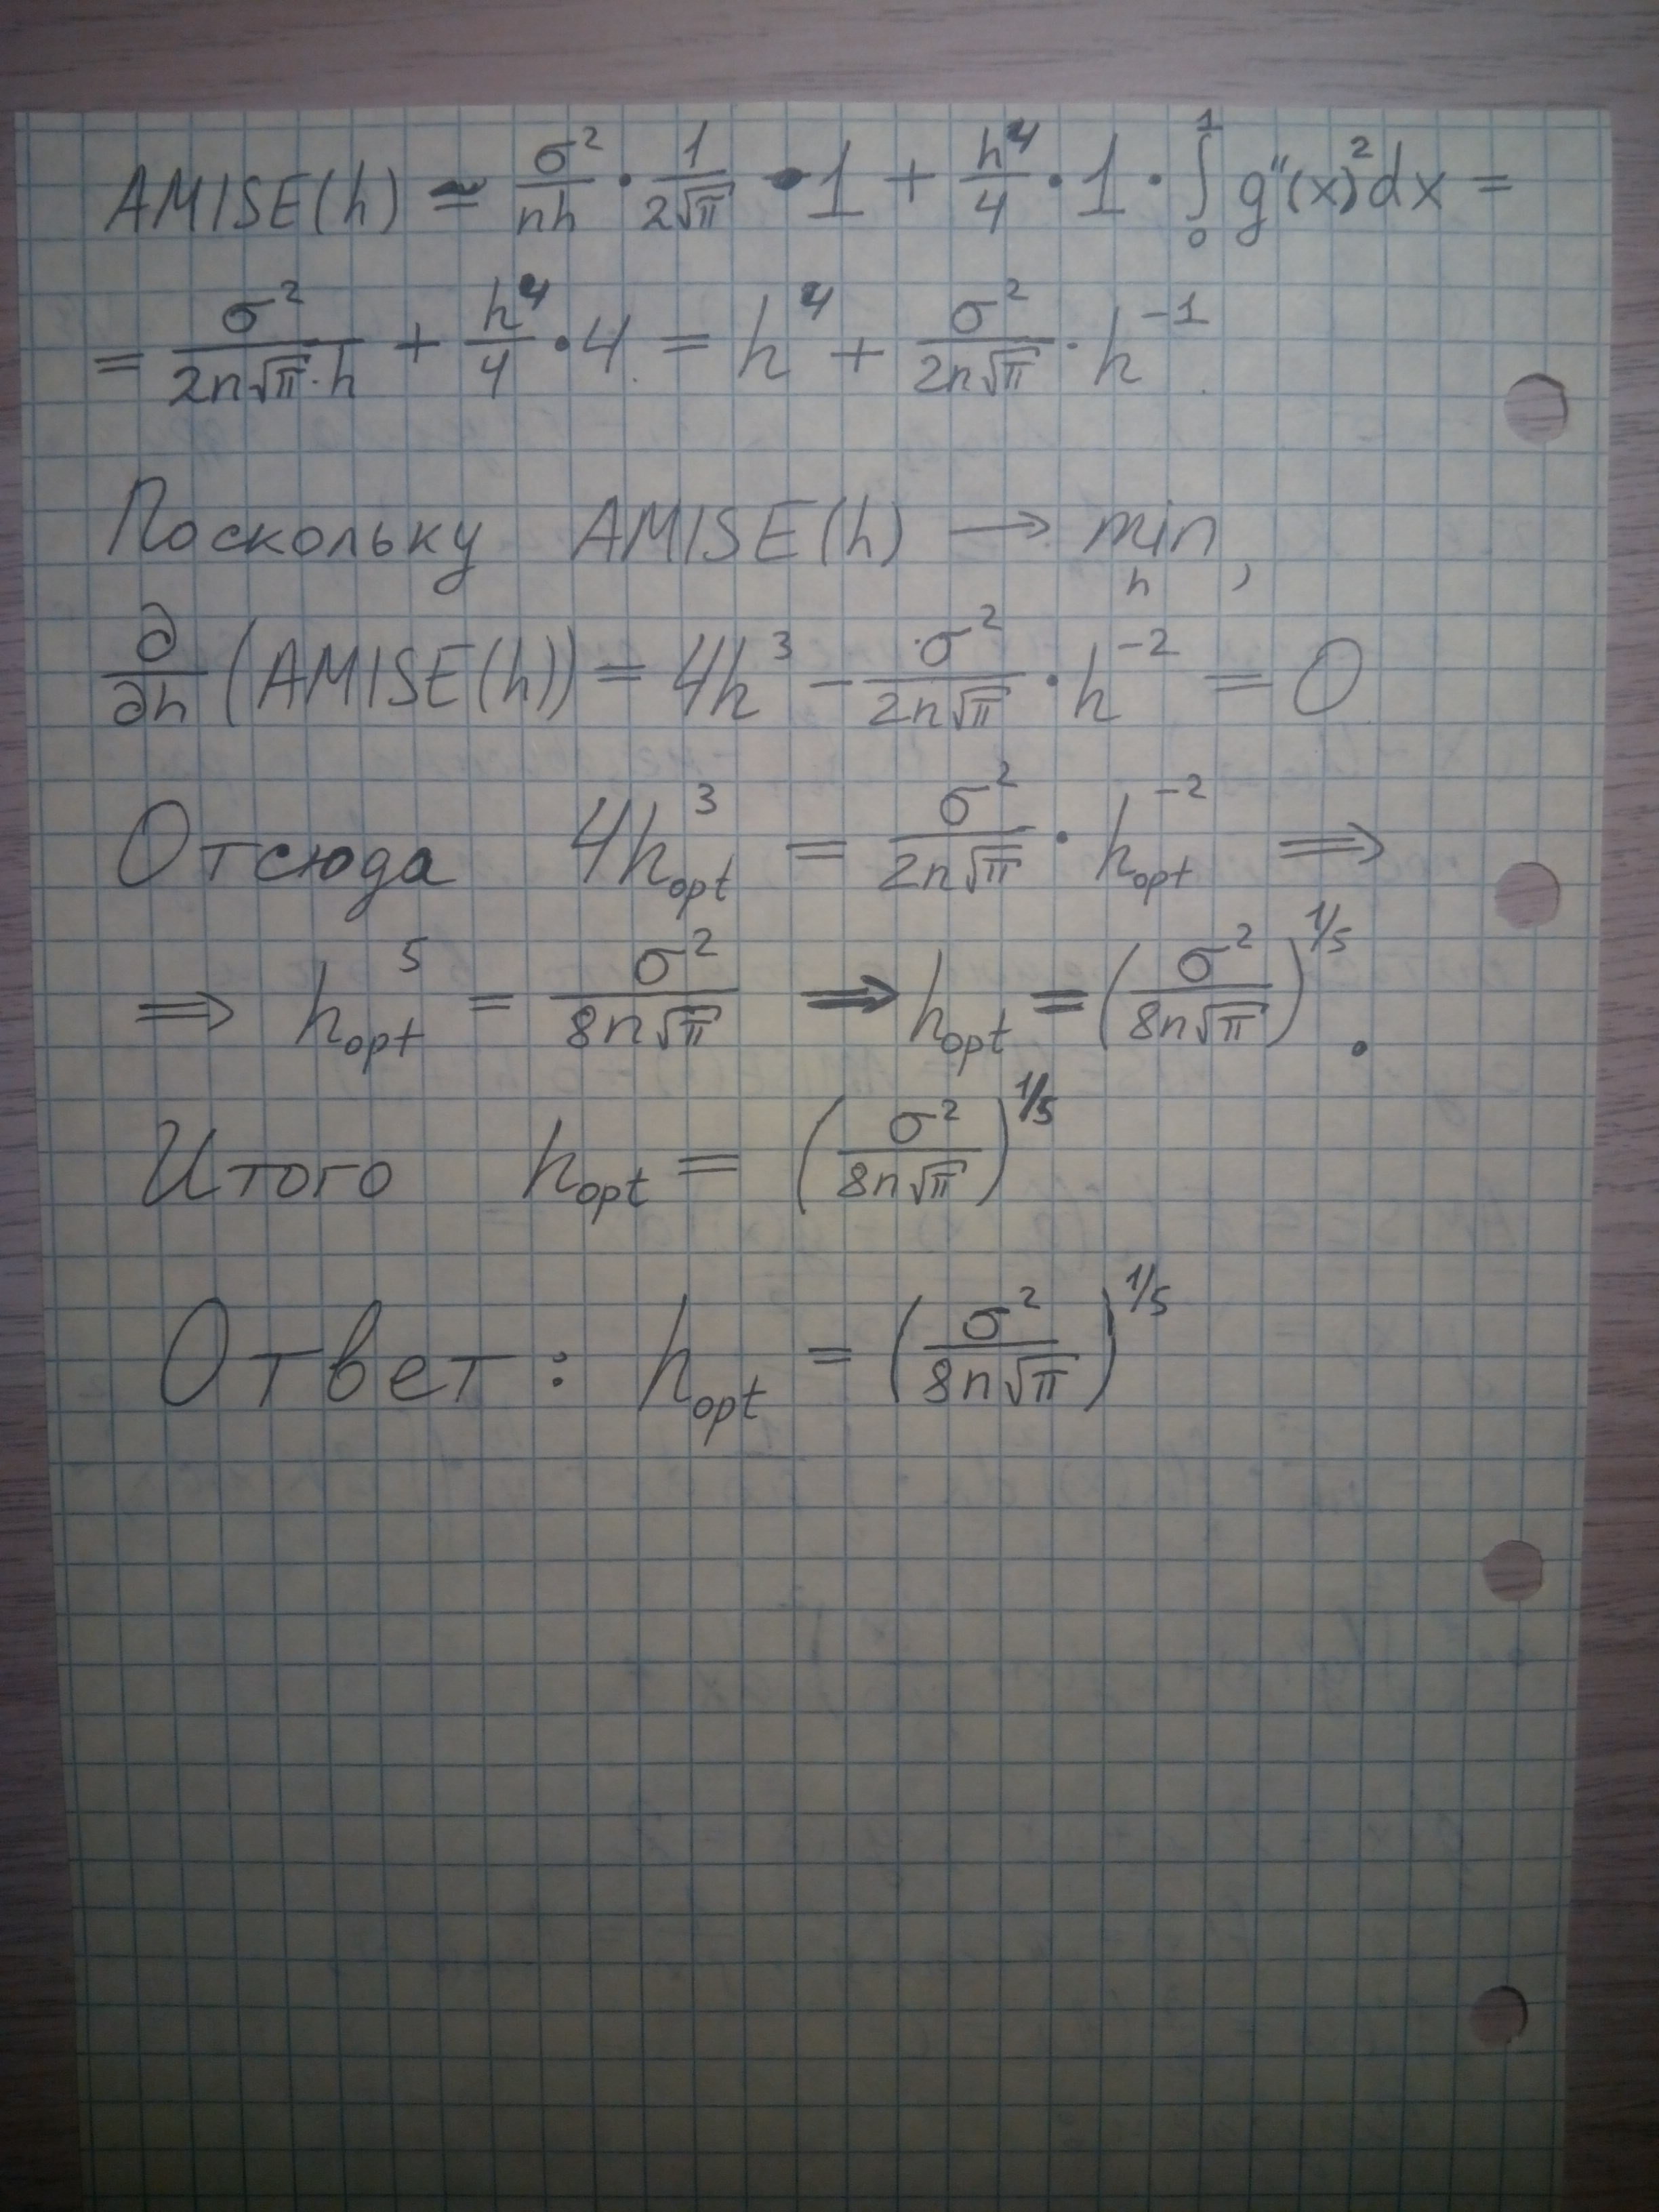 AMISE(h) ≃ σ²/(nh) · 1/(2√π) · 1 + h⁴/4 · 1 · ∫₀¹ g''(x)² dx =
= σ²/(2n√π·h) + h⁴/4 · 4 = h⁴ + σ²/(2n√π) · h⁻¹
Поскольку AMISE(h) → min_h ,
∂/∂h (AMISE(h)) = 4h³ − σ²/(2n√π) · h⁻² = 0
Отсюда 4h_opt³ = σ²/(2n√π) · h_opt⁻² ⟹
⟹ h_opt⁵ = σ²/(8n√π) ⟹ h_opt = (σ²/(8n√π))^(1/5) .
Итого h_opt = (σ²/(8n√π))^(1/5)
Ответ: h_opt = (σ²/(8n√π))^(1/5)